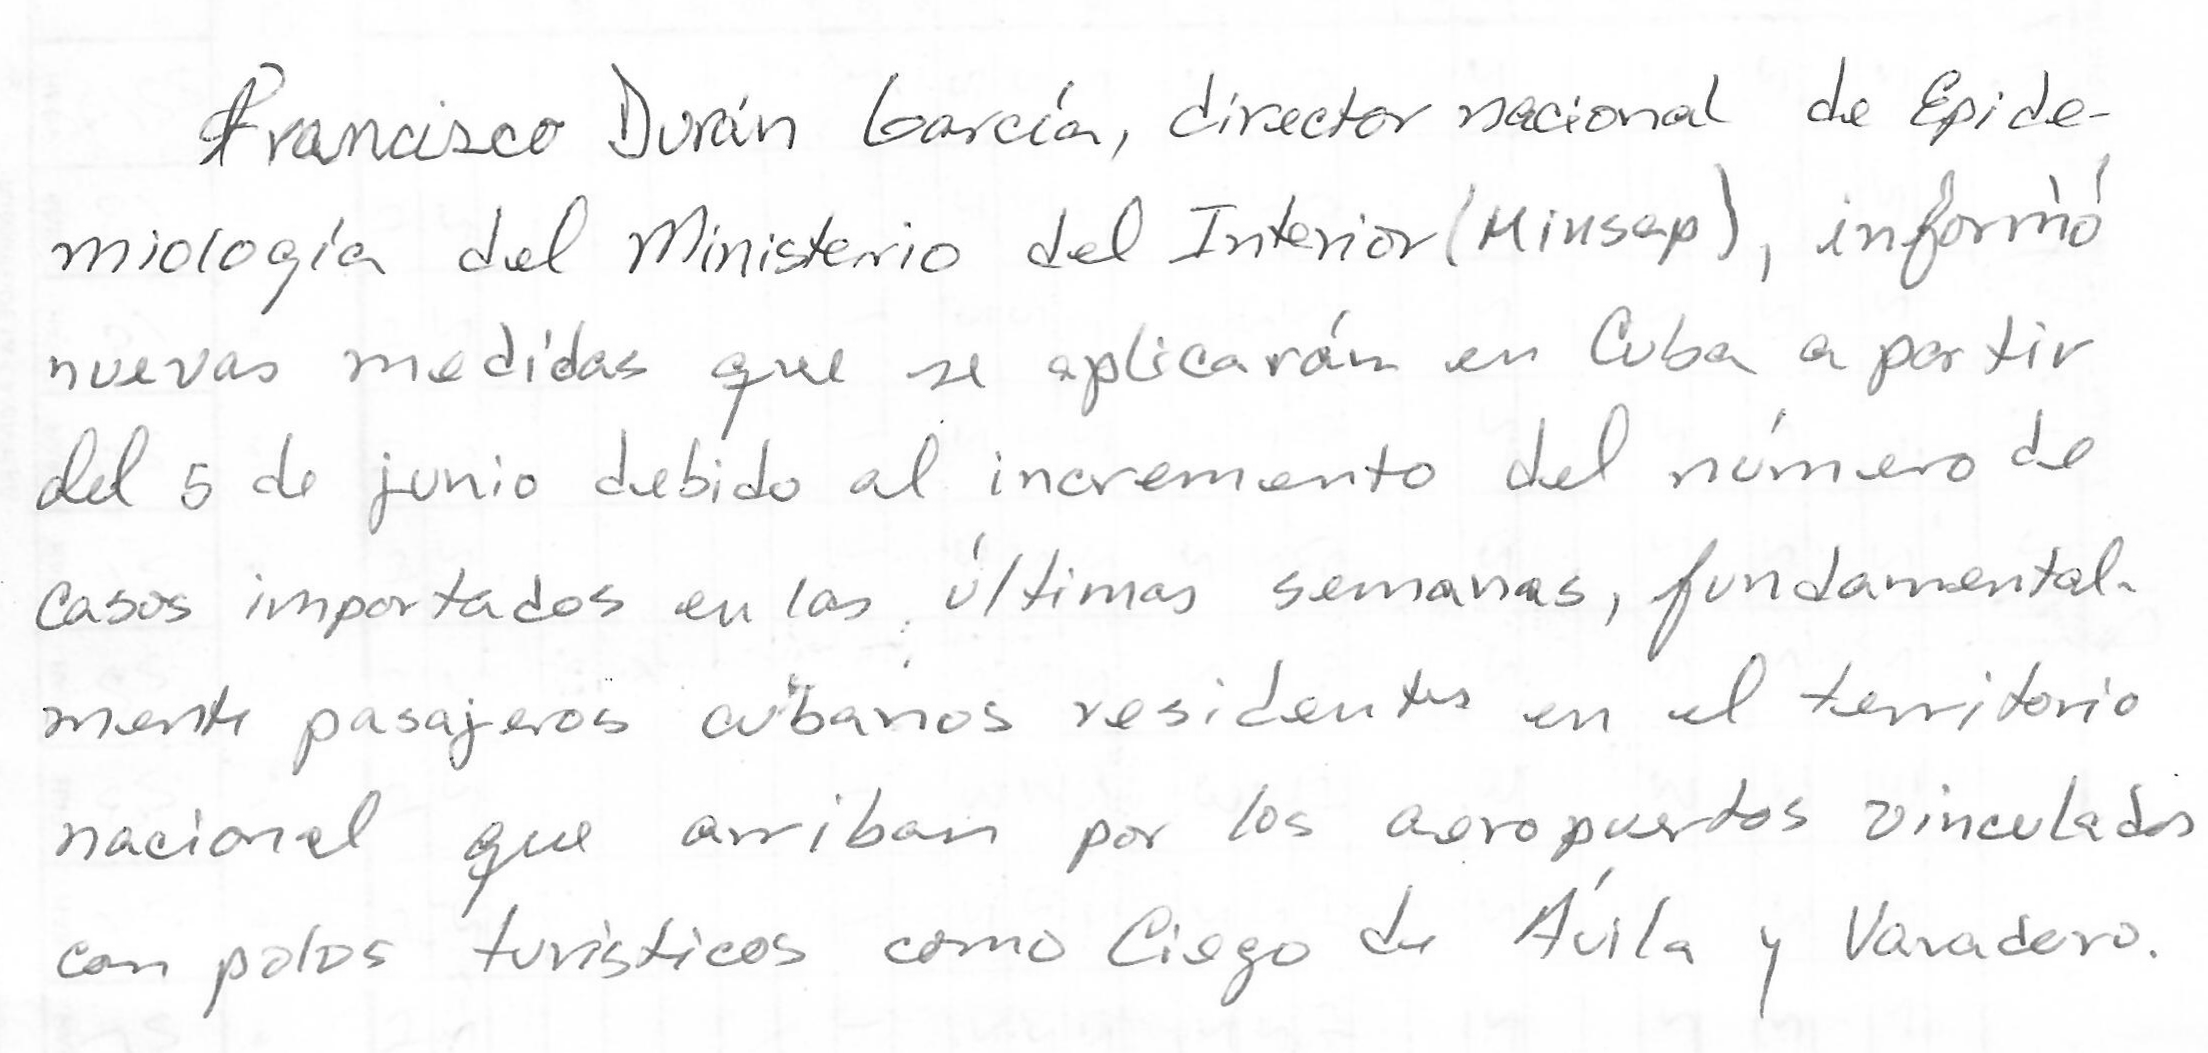 Francisco Durán García, director nacional de Epide-
miología del Ministerio del Interior (Minsap), informó
nuevas medidas que se aplicarán en Cuba a partir
del 5 de junio debido al incremento del número de
casos importados en las últimas semanas, fundamental-
mente pasajeros cubanos residentes en el territorio
nacional que arriban por los aeropuertos vinculados
con polos turísticos como Ciego de Ávila y Varadero.